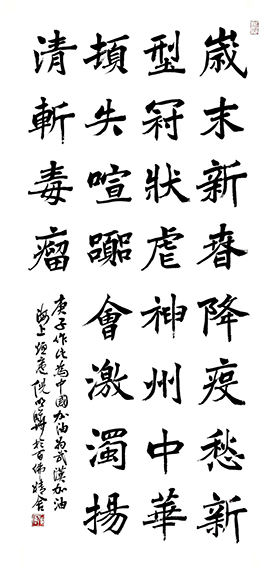 歲末新春降疫愁新
型冠狀虐神州中華
頓失喧囂會激濁揚
清斬毒瘤
庚子作此為中國加油為武漢加油
海上倪於百佛精舍